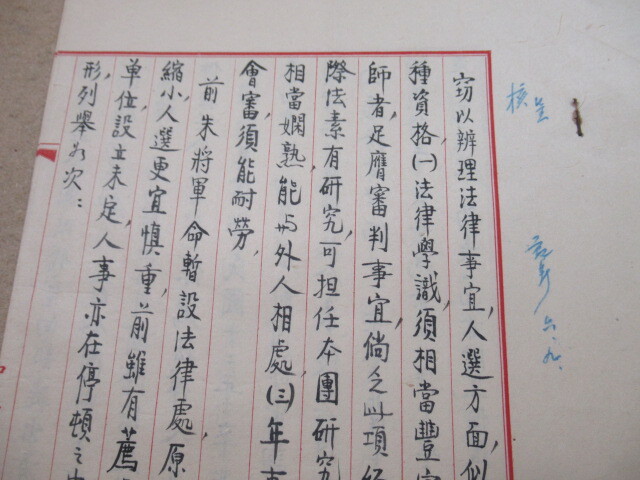 核呈
六、九、
窃以辦理法律事宜，人選方面，似
種資格，(一)法律學識，須相當豐
師者，足膺審判事宜，倘乏此項經
際法素有研究，可担任本團研究
相當嫻熟，能与外人相處，(三)年
會審，須能耐勞，
前朱將軍命暫設法律處，原
縮小，人選更宜慎重，前雖有薦
单位設立未定，人事亦在停頓之
形，列舉如次：